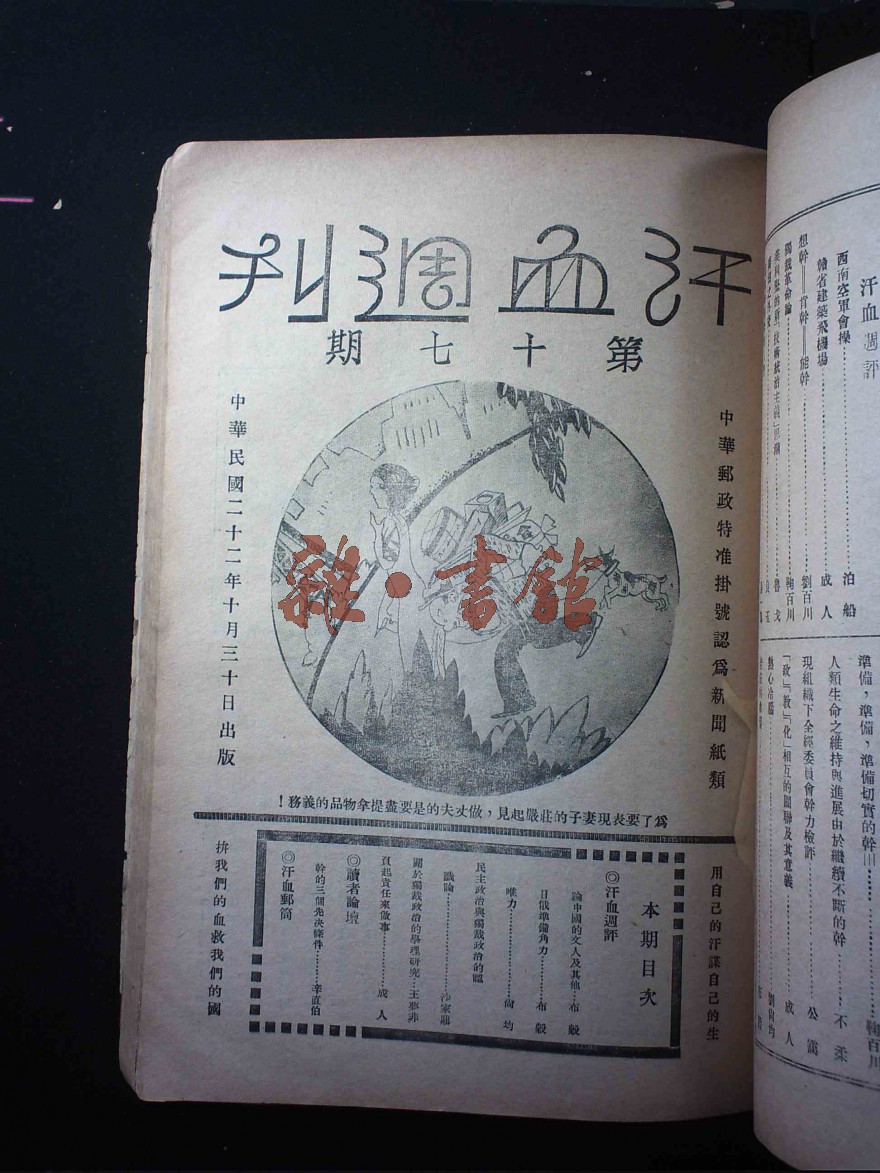 汗血週刊
第十七期
中華郵政特准掛號認爲新聞紙類
中華民國二十二年十月三十日出版
雜·書館
爲了要表現妻子的莊嚴起見，做丈夫的是要盡提拿物品的義務！
用自己的汗謀自己的生
本期目次
◎汗血週評
論中國的文人及其他…布穀
日俄準備角力…布穀
唯力…尚均
民主政治與獨裁政治的
議論…沙家鼎
關於獨裁政治的學理研究…王夢非
負起責任來做事…成人
◎讀者論壇
幹的三個先決條件…李直伯
◎汗血郵筒
拚我們的血救我們的國
汗血週評
西南空軍會操…泊船
贛省建築飛機場…成人
想幹——肯幹——能幹…劉百川
獨裁革命論…鞠百川
魯戈
準備，準備，準備切實的幹…鞠百川
人類生命之維持與進展由於繼續不斷的幹…不柔
現組織下全經委員會幹力檢評…公篤
「政」「教」「化」相互的關聯及其意義…成人
熱心冷腦…劉尚均